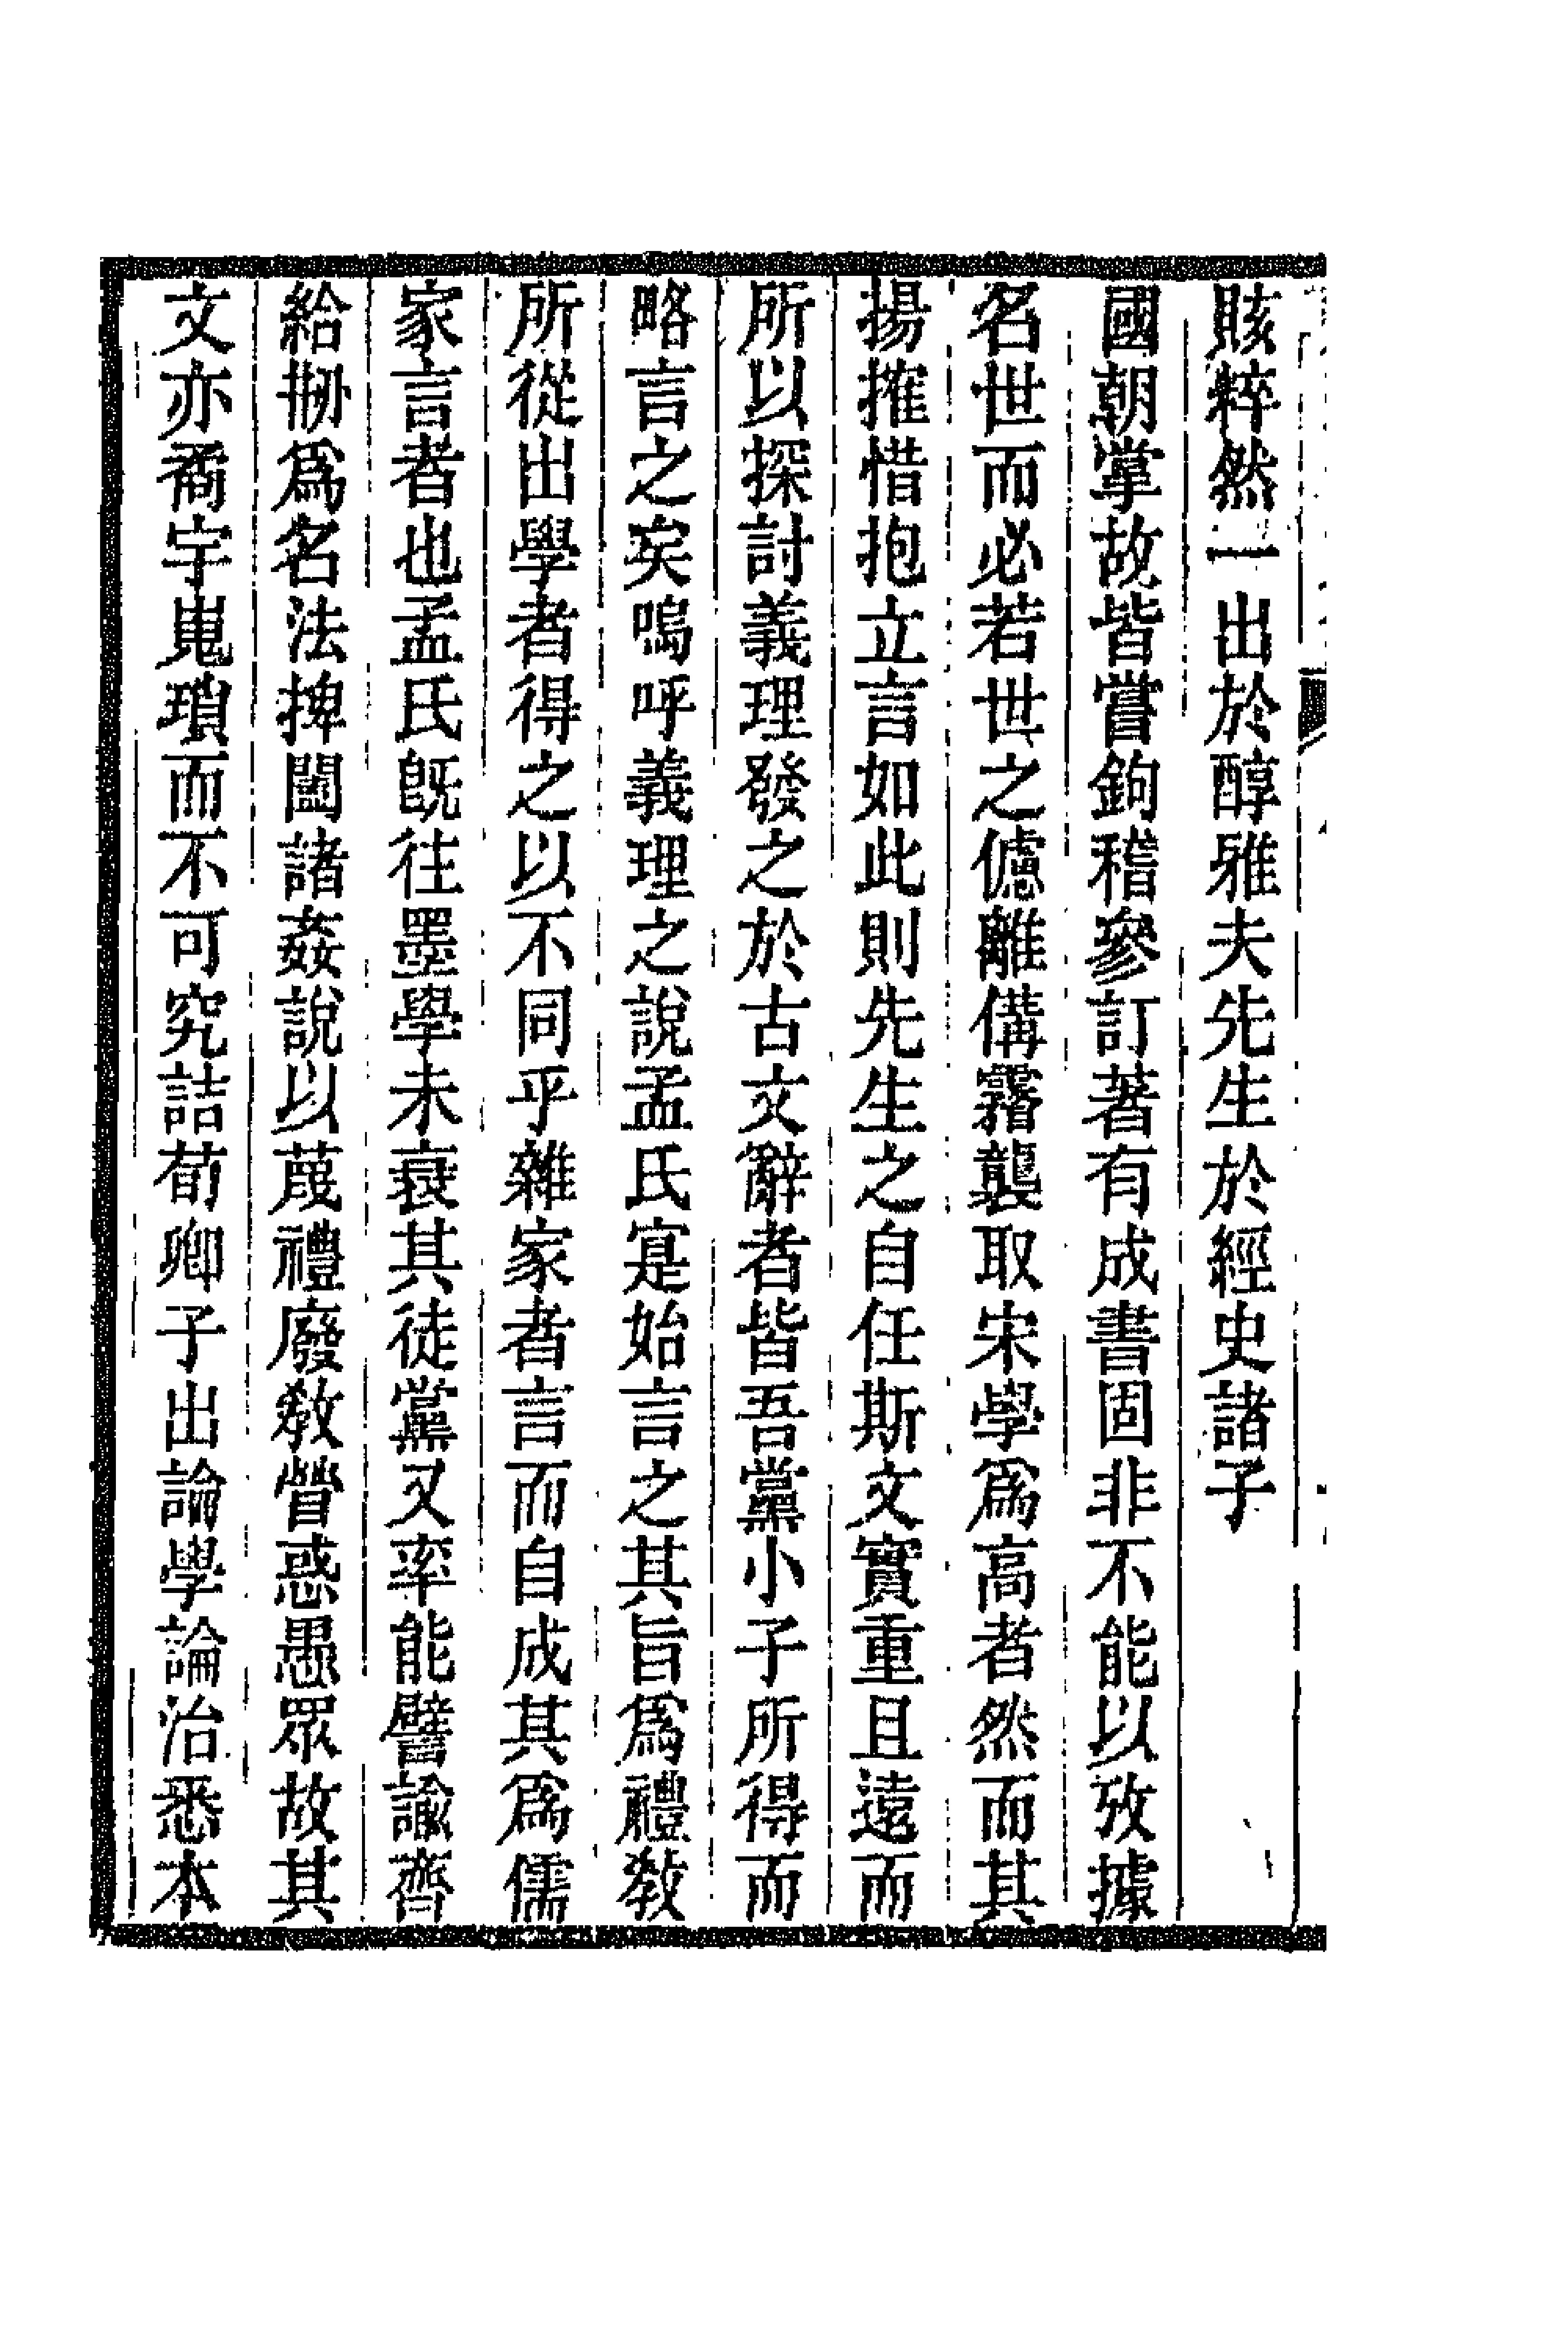 賅粹然一出於醇雅夫先生於經史諸子
國朝掌故皆嘗鉤稽參訂著有成書固非不能以攷據
名世而必若世之儢離傋霿襲取宋學爲高者然而其
揚搉惜抱立言如此則先生之自任斯文實重且遠而
所以探討義理發之於古文辭者皆吾黨小子所得而
略言之矣嗚呼義理之說孟氏寔始言之其旨爲禮敎
所從出學者得之以不同乎雜家者言而自成其爲儒
家言者也孟氏旣往墨學未衰其徒黨又率能譬諭齊
給刱爲名法捭闔諸姦說以蔑禮廢敎瞀惑愚眾故其
文亦矞宇嵬瑣而不可究詰荀卿子出論學論治悉本